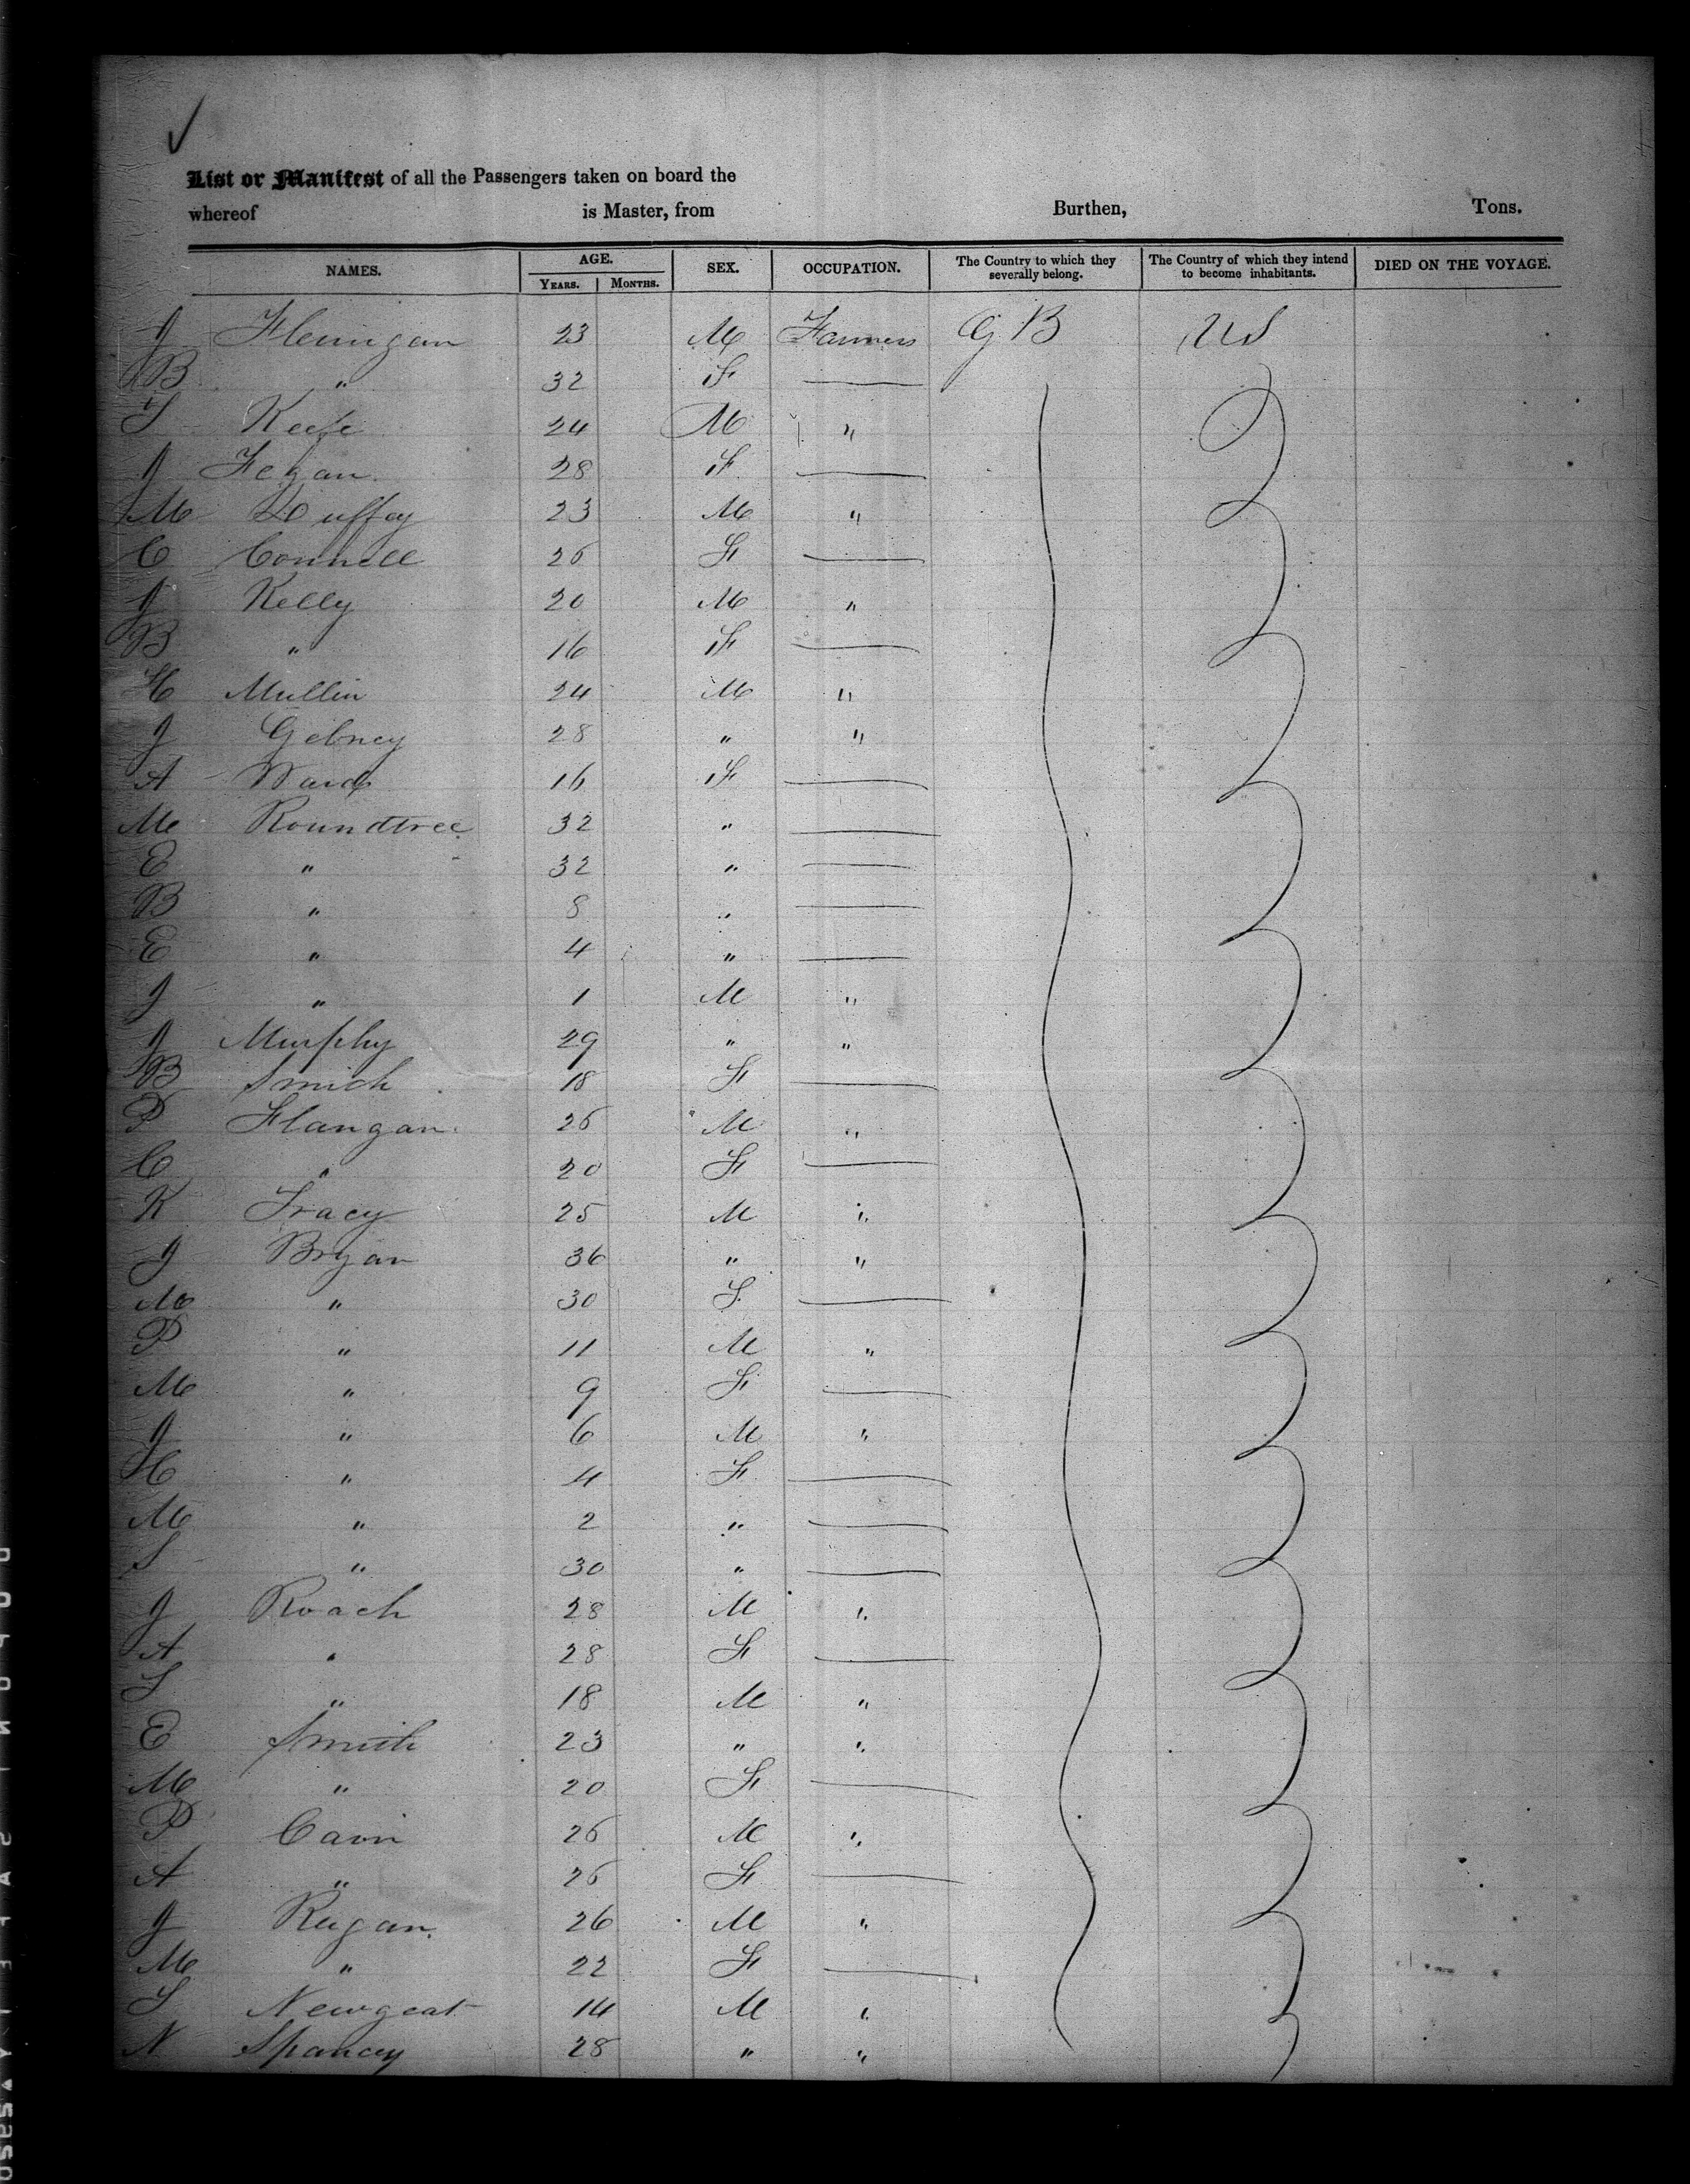 List or Manifest of all the Passengers taken on board the
whereof is Master, from Burthen, Tons.
NAMES. AGE. YEARS. MONTHS. SEX. OCCUPATION. The Country to which they severally belong. The Country of which they intend to become inhabitants. DIED ON THE VOYAGE.
J Flenigan 23 M Farmers G B U S
B " 32 F
T Keefe 24 M "
J Fegan 28 F
M Duffey 23 M "
C Connell 26 F
J Kelly 20 M "
B " 16 F
H Mullin 24 M "
J Gebney 28 " "
A Ward 16 F
M Roundtree 32 "
E " 32 "
B " 8 "
E " 4 "
J " 1 M "
J Murphy 29 " "
B Smich 18 F
P Flangan 26 M "
C " 20 F
K Tracy 25 M "
J Bryan 36 " "
M " 30 F
P " 11 M "
M " 9 F
J " 6 M "
H " 4 F
M " 2 "
S " 30 "
J Roach 28 M "
A " 28 F
S " 18 M "
E Smith 23 " "
M " 20 F
P Cavin 26 M "
A " 26 F
J Regan 26 M "
M " 22 F
S Newgeat 14 M "
N Spancey 28 " "